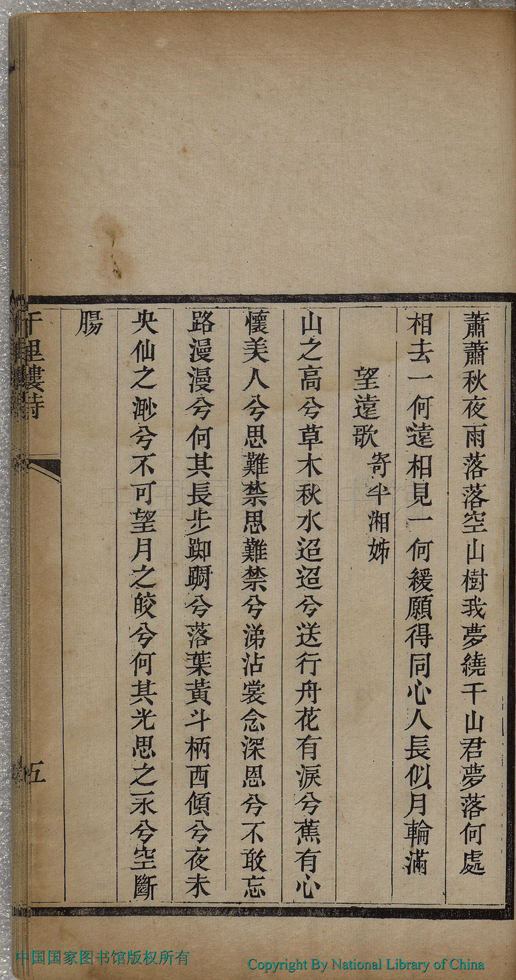 蕭蕭秋夜雨落落空山樹我夢繞千山君夢落何處
相去一何遠相見一何緩願得同心人長似月輪滿
望遠歌 寄半湘姊
山之高兮草木秋水迢迢兮送行舟花有淚兮蕉有心
懷美人兮思難禁思難禁兮涕沾裳念深恩兮不敢忘
路漫漫兮何其長步踟躕兮落葉黃斗柄西傾兮夜未
央仙之渺兮不可望月之皎兮何其光思之永兮空斷
腸
千里樓詩
五
中国国家图书馆版权所有
Copyright By National Library of China